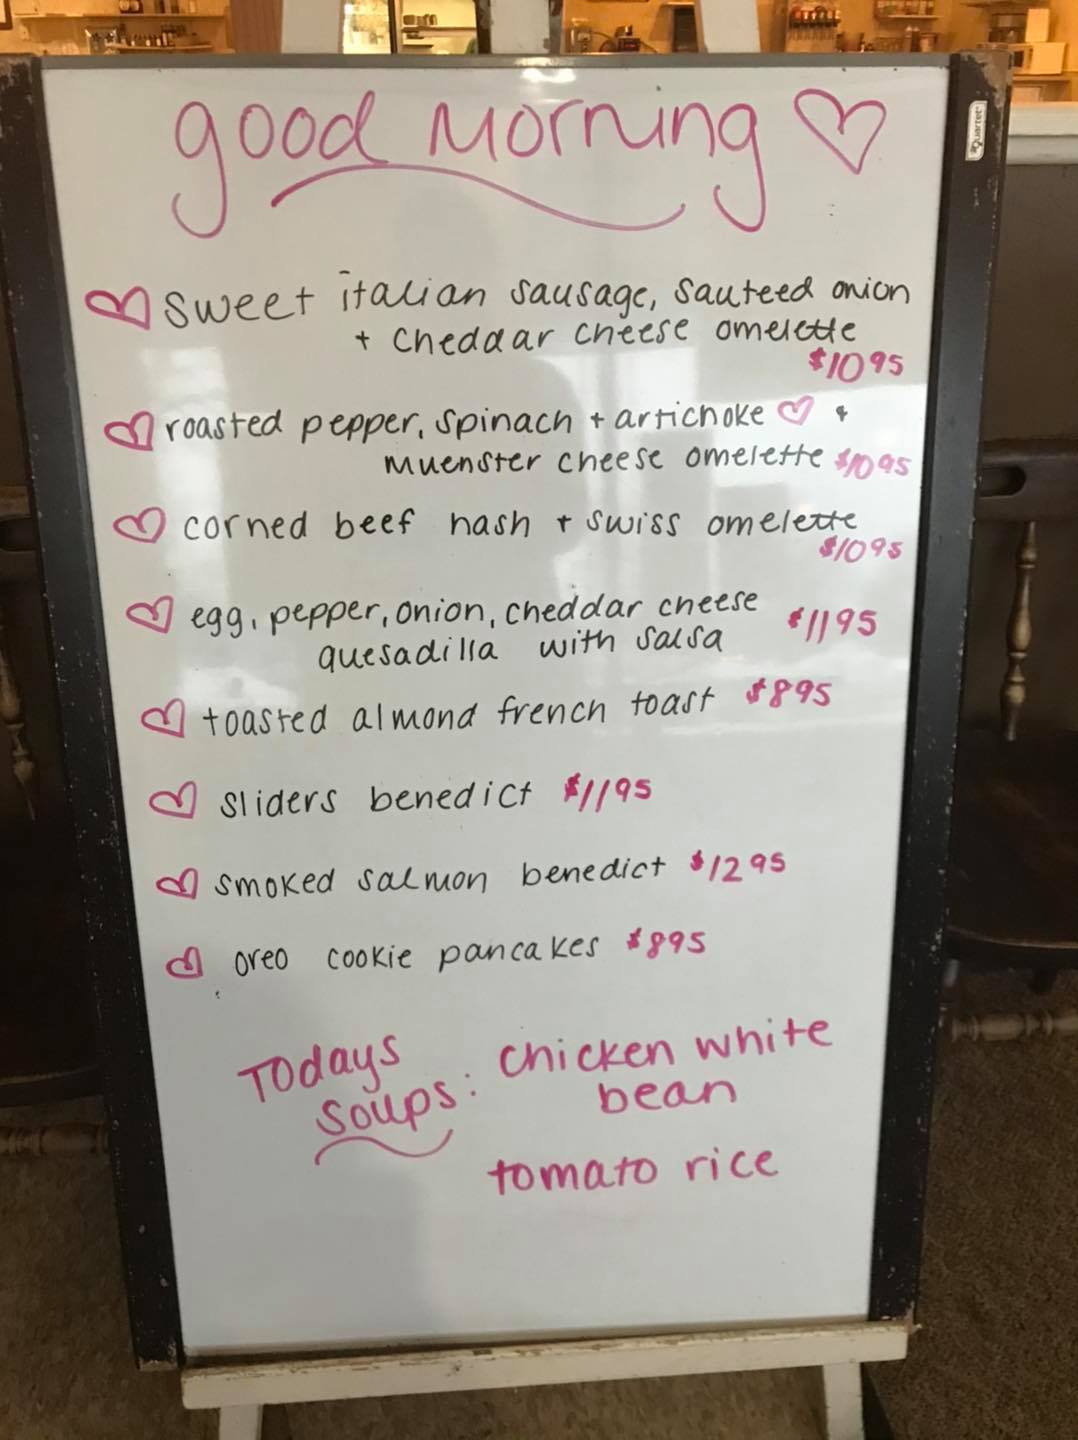 good Morning
sweet italian sausage, sauteed onion
+ cheddar cheese omelette
$10 95
roasted pepper, spinach + artichoke ♡ +
Muenster cheese omelette $10 95
corned beef hash + swiss omelette
$10 95
egg, pepper, onion, cheddar cheese
quesadilla with salsa $11 95
toasted almond french toast $8 95
sliders benedict $11 95
smoked salmon benedict $12 95
oreo cookie pancakes $8 95
Todays
soups: chicken white
bean
tomato rice
Quartet